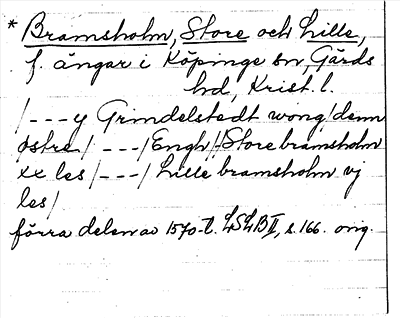 * Bramsholm, Store och Lille,
f. ängar i Köpinge sn, Gärds
hd, Krist. l.
/---y Grindelstedt wong/denn
østre/ ---/Engh/Store bramsholm
xx les/---/Lille bramsholm vj
les/
förra delen av 1570-t. LSLB II, s. 166. orig.